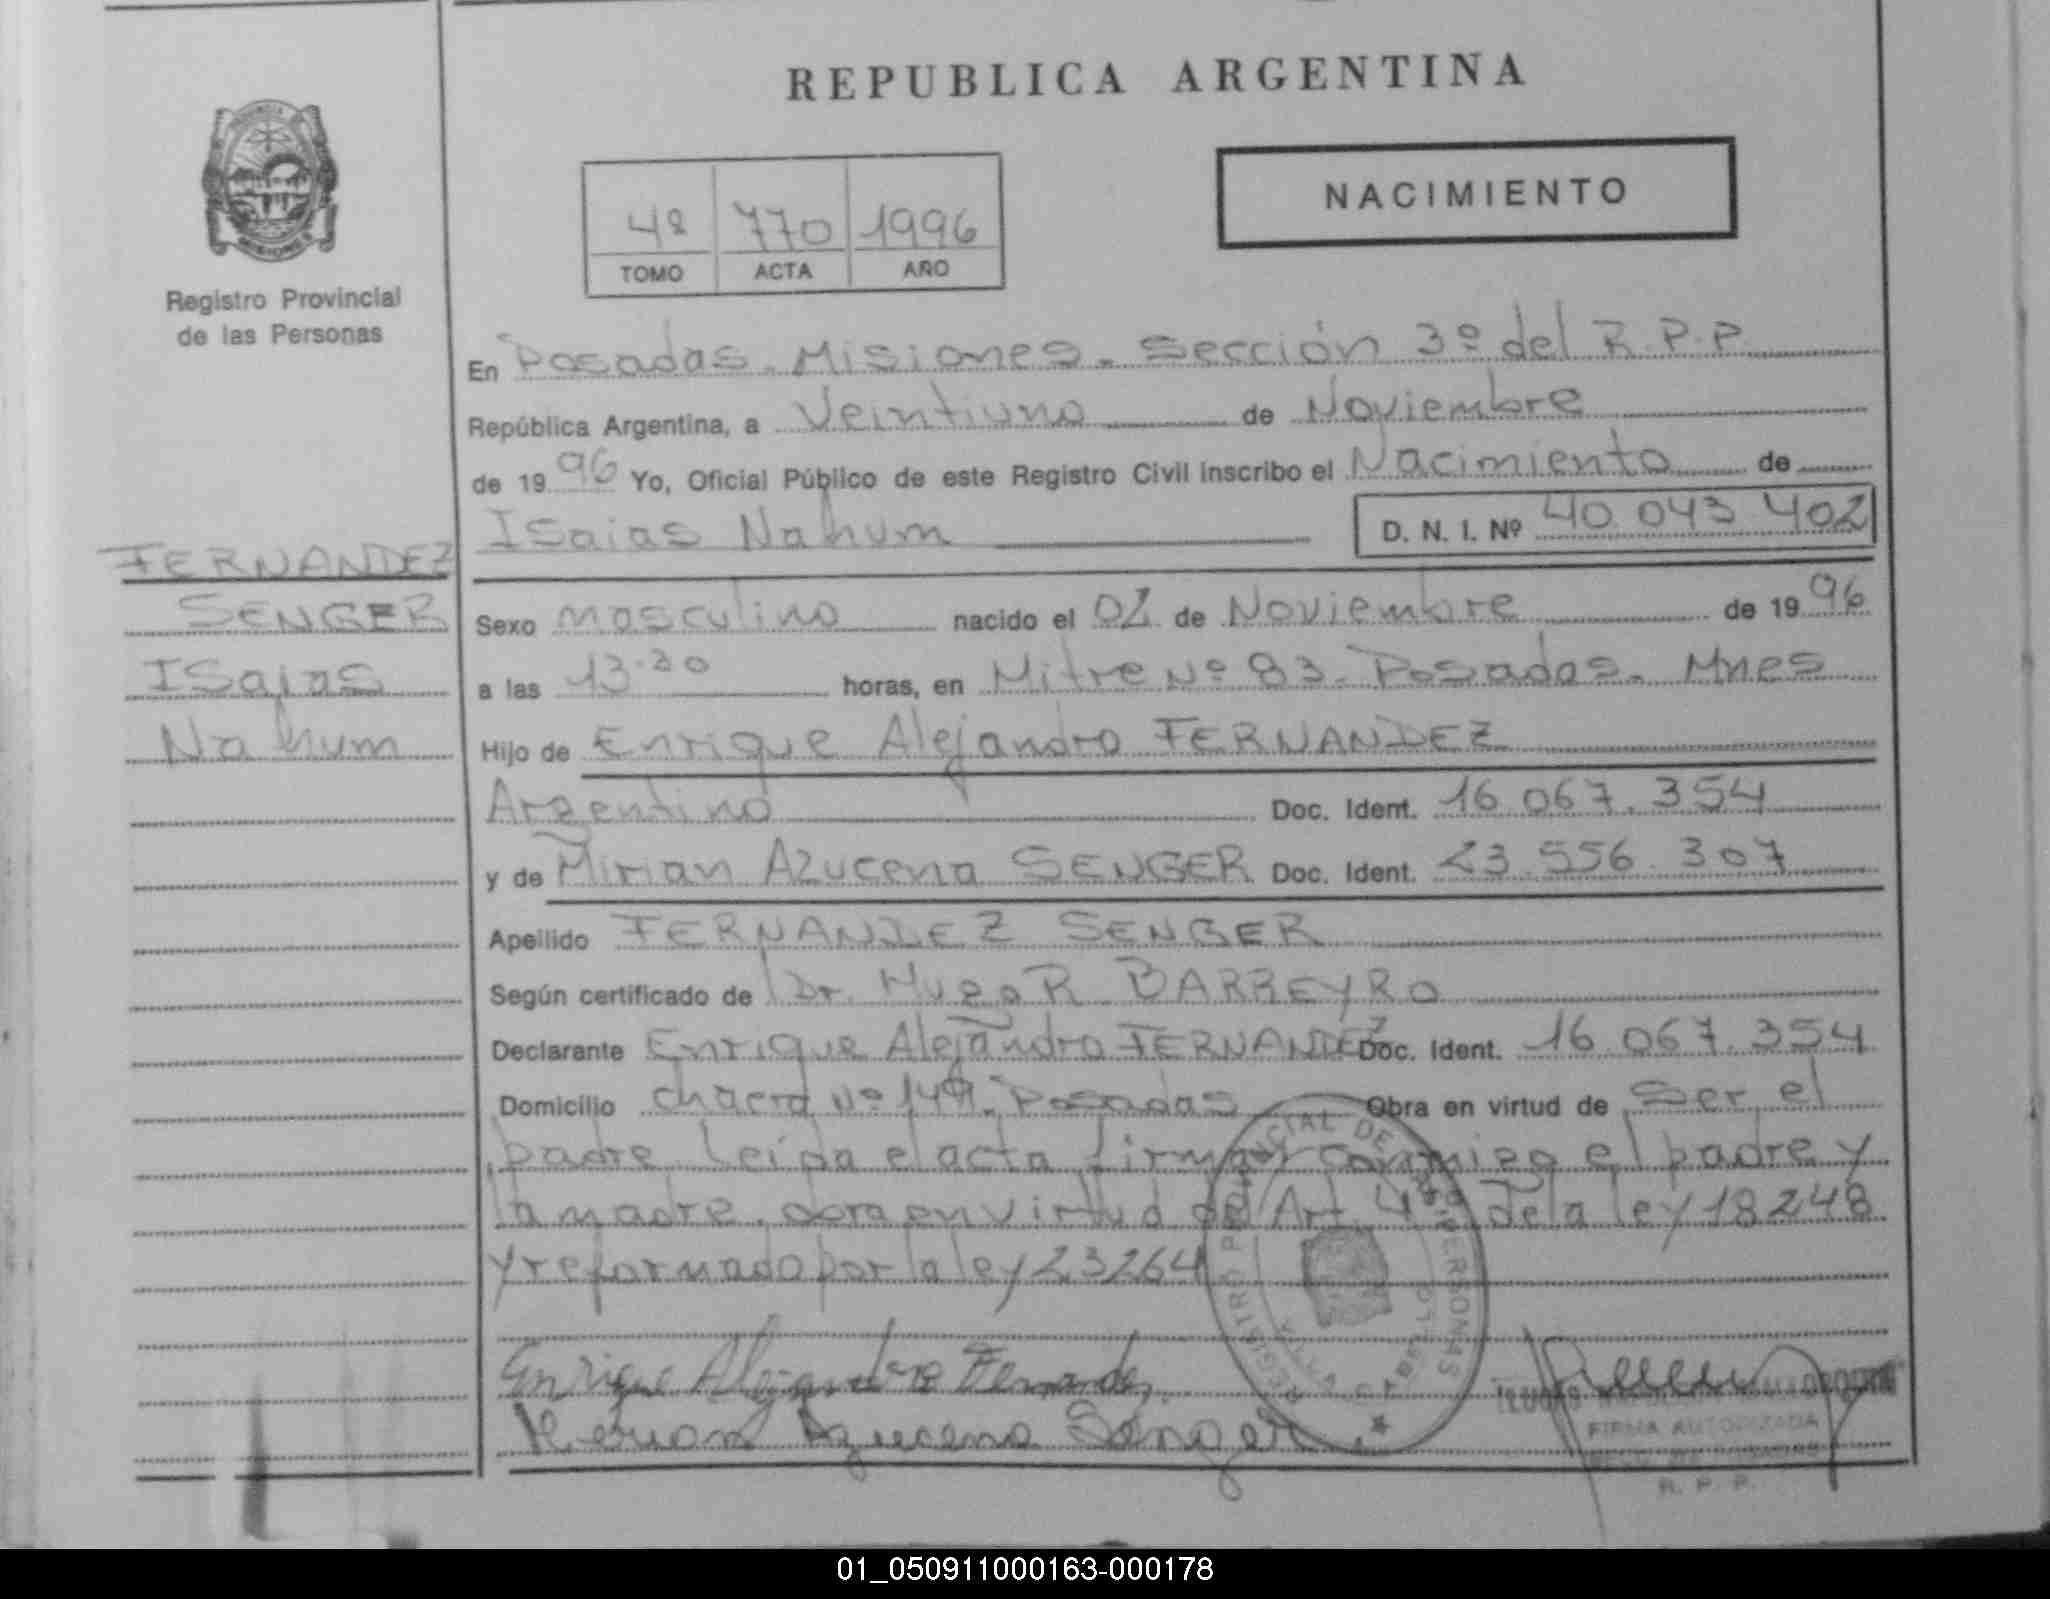 REPUBLICA ARGENTINA
NACIMIENTO
4º 770 1996
TOMO ACTA AÑO
Registro Provincial
de las Personas
En Posadas. Misiones. Sección 3º del R.P.P.
República Argentina, a Veintiuno de Noviembre
de 1996 Yo, Oficial Público de este Registro Civil inscribo el Nacimiento de
Isaias Nahum D. N. I. Nº 40 043 402
FERNANDEZ
SENGER
Isaias
Nahum
Sexo masculino nacido el 02 de Noviembre de 1996
a las 13.20 horas, en Mitre Nº 83. Posadas. Mnes
Hijo de Enrique Alejandro FERNANDEZ
Argentino Doc. Ident. 16.067.354
y de Mirian Azucena SENGER Doc. Ident. 23.556.307
Apellido FERNANDEZ SENGER
Según certificado de Dr. Hugo R BARREYRO
Declarante Enrique Alejandro FERNANDEZ Doc. Ident. 16.067.354
Domicilio chacra Nº 149. Posadas Obra en virtud de Ser el
padre Leída el acta firman conmigo el padre y
la madre. obra en virtud del Art. 4º de la ley 18248
y reformado por la ley 23264
Enrique Alejandro Fernandez
Azucena Senger
REGISTRO PROVINCIAL DE LAS PERSONAS
FIRMA AUTORIZADA
R. P. P.
01_050911000163-000178